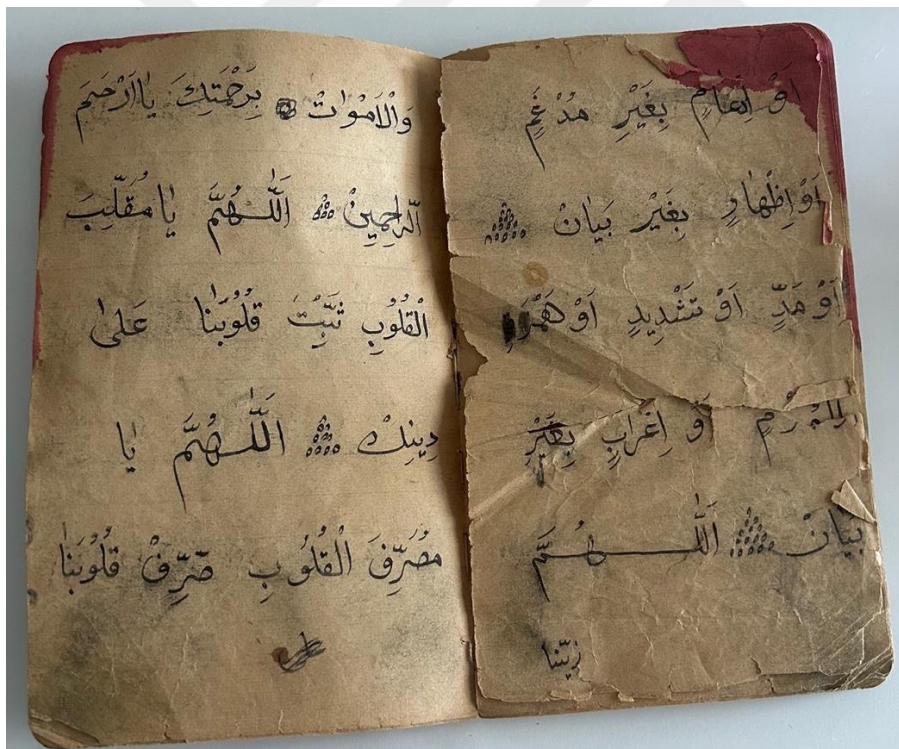 اَوْ اِدْغَامٍ بِغَيْرِ مُدْغَمٍ
اَوْ اِظْهَارٍ بِغَيْرِ بَيَانْ
اَوْ مَدٍّ اَوْ تَشْدِيدٍ اَوْ هَمْزَةٍ
اَوْ اِعْرَابٍ بِغَيْرِ
بَيَانْ اَللّٰهُمَّ
زَيِّنَّا
وَالْاَمْوَاتْ بِرَحْمَتِكَ يَا اَرْحَمَ
الرَّاحِمِينْ اَللّٰهُمَّ يَا مُقَلِّبَ
الْقُلُوبِ ثَبِّتْ قُلُوبَنَا عَلٰى
دِينِكْ اَللّٰهُمَّ يَا
مُصَرِّفَ الْقُلُوبِ صَرِّفْ قُلُوبَنَا